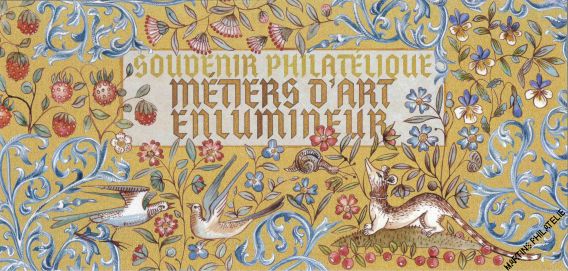 SOUVENIR PHILATÉLIQUE
MÉTIERS D'ART
ENLUMINEUR
MARTINS PHILATELIE